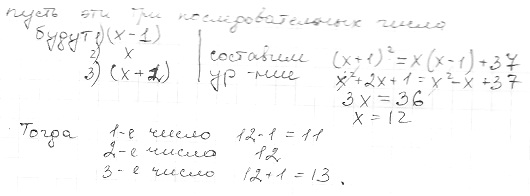 пусть эти три последовательных числа
будут 1) (x-1)
2) x
3) (x+1)
составим ур-ние
(x+1)² = x(x-1)+37
x²+2x+1 = x²-x+37
3x = 36
x = 12
Тогда 1-е число 12-1 = 11
2-е числа 12
3-е число 12+1 = 13.